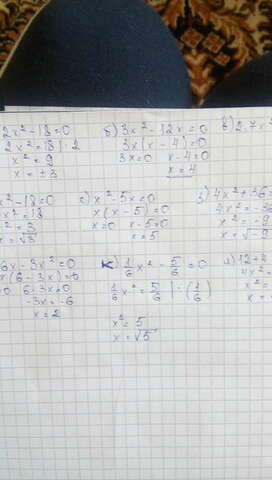 2x² - 18 = 0
2x² = 18 | · 2
x² = 9
x = ± 3
б) 3x² - 12x = 0
3x(x - 4) = 0
3x = 0 x - 4 = 0
x = 4
в) 2,7x²
x² - 18 = 0
x² = 18
x² = 3
x = √3
е) x² - 5x = 0
x(x - 5) = 0
x = 0 x - 5 = 0
x = 5
4x² + 36
4x² = -36
x² = -9
x = √-9
6x - 3x² = 0
x(6 - 3x) = 0
6 - 3x = 0
-3x = -6
x = 2
к) 1/6 x² - 5/6 = 0
1/6 x² = 5/6 | · (1/6)
x² = 5
x = √5
12 + 4
4x² =
x² =
x =